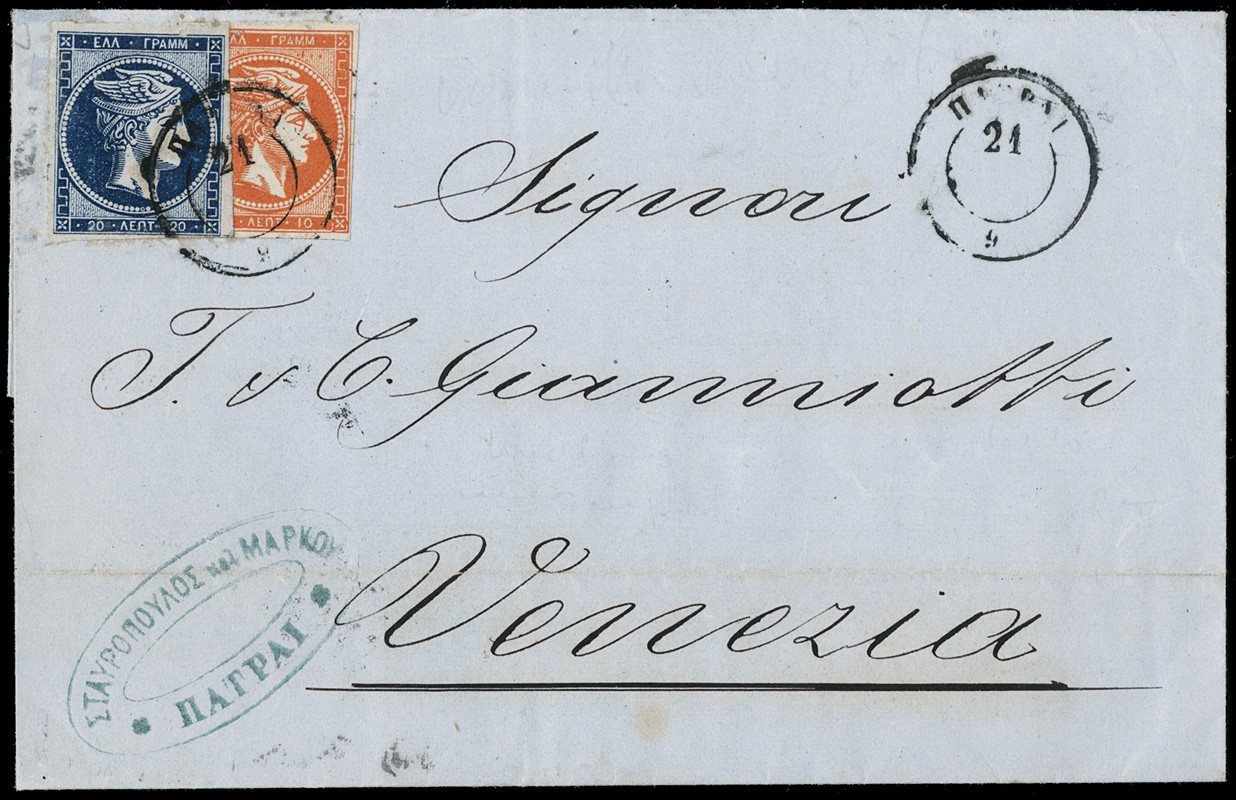 ΕΛΛ · ΓΡΑΜΜ
20 · ΛΕΠΤ · 20
ΛΛ · ΓΡΑΜΜ
ΛΕΠΤ · 10
21
9
ΠΑΤΡΑΙ
21
9
Signori
T. & C. Gianniotti
Venezia
ΣΤΑΥΡΟΠΟΥΛΟΣ καὶ ΜΑΡΚΟΥ
ΠΑΤΡΑΙ